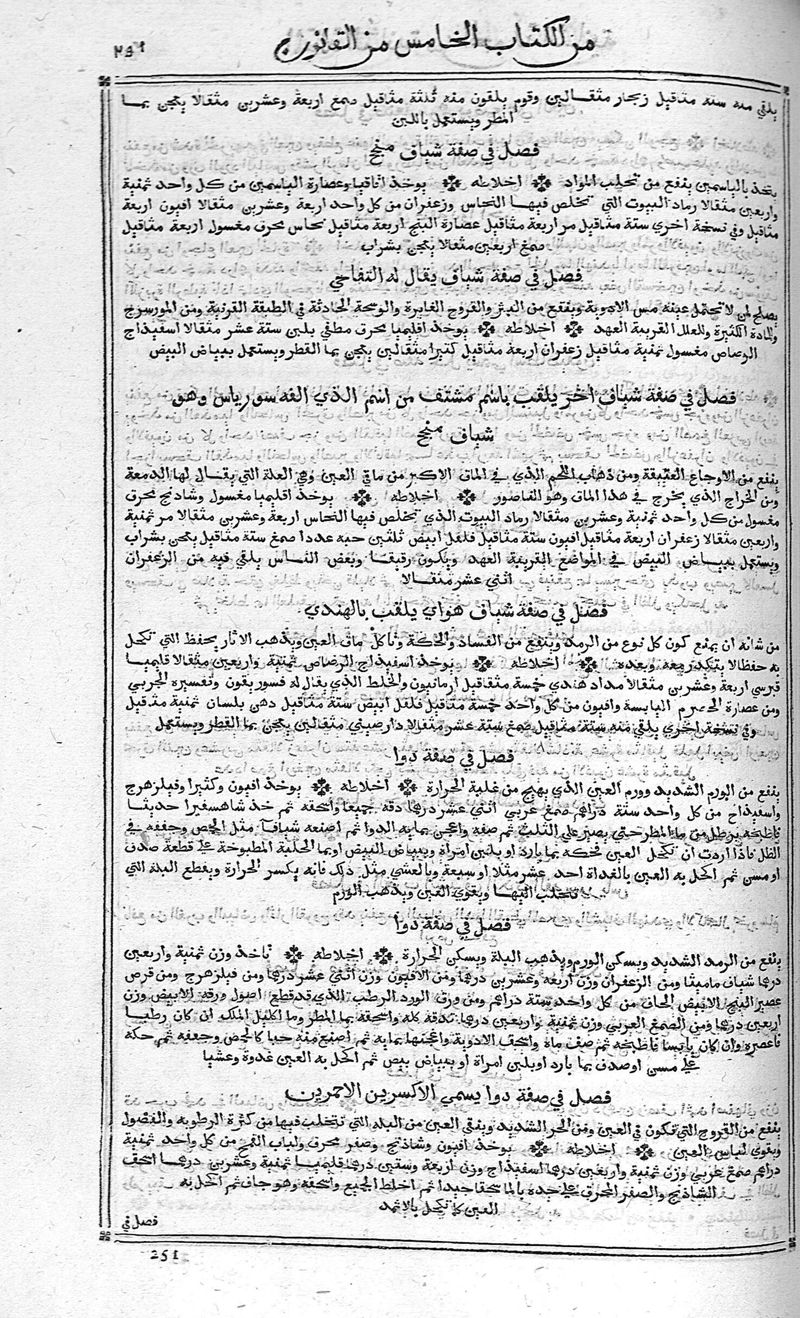 من الكتاب الخامس من القانون
يلقي منه ستة مثاقيل زنجار مثقالين وقوم يلقون منه ثلثة مثاقيل صمغ اربعة وعشرين مثقالا يعجن بما
المطر ويستعمل باللبن
فصل في صفة شياف منجح
يتخذ بالياسمين ينفع من تحلب المواد اخلاطه يوخذ اقاقيا وعصارة الياسمين من كل واحد ثمنية
واربعين مثقالا رماد البيوت التي تخلص فيها النحاس وزعفران من كل واحد اربعة وعشرين مثقالا افيون اربعة
مثاقيل وفي نسخة اخري ستة مثاقيل مر اربعة مثاقيل عصارة البنج اربعة مثاقيل نحاس محرق مغسول اربعة مثاقيل
صمغ اربعين مثقالا يعجن بشراب
فصل في صفة شياف يقال له التفاحي
يصلح لمن لا تحتمل عينه مس الادوية وينفع من البثر والقروح الغايرة والوسخة الحادثة في الطبقة القرنية ومن المورسرج
والمادة الكثيرة وللعلل القريبة العهد اخلاطه يوخذ اقليميا محرق مطفي بلبن ستة عشر مثقالا اسفيداج
الرصاص مغسول ثمنية مثاقيل زعفران اربعة مثاقيل كثيرا مثقالين يعجن بما القطر ويستعمل ببياض البيض
فصل في صفة شياف اخر يلقب باسم مشتف من اسم الذي الفه سورياس وهو
شياف منجح
ينفع من الاوجاع العتيقة ومن ذهاب اللحم الذي في الماق الاكبر من ماقي العين وهي العلة التي يقال لها الدمعة
ومن الخراج الذي يخرج في هذا الماق وهو الناصور اخلاطه يوخذ اقليميا مغسول وشاذنج محرق
مغسول من كل واحد ثمنية وعشرين مثقالا رماد البيوت الذي تخلص فيها النحاس اربعة وعشرين مثقالا مر ثمنية
واربعين مثقالا زعفران اربعة مثاقيل افيون ستة مثاقيل فلفل ابيض ثلثين حبه عددا صمغ ستة مثاقيل يعجن بشراب
ويستعمل ببياض البيض في المواضع القريبة العهد ويكون رقيقا وبعض الناس يلقي فيه من الزعفران
اثني عشر مثقالا
فصل في صفة شياف هواي يلقب بالهندي
من شانه ان يمنع كون كل نوع من الرمد وينفع من الفساد والحكة وتاكل ماق العين ويذهب الاثار يحفظ التي تكحل
به حفظا لا يتكدر معه وبعده اخلاطه يوخذ اسفيذاج الرصاص ثمنية واربعين مثقالا قليميا
قبرسي اربعة وعشرين مثقالا مداد هندي خمسة مثقاقيل ارمانيون والخلط الذي يقال له فسوريقون وتفسيره الجربي
ومن عصارة الحصرم اليابسة وافيون من كل واحد خمسة مثاقيل فلفل ابيض ستة مثاقيل دهن بلسان ثمنية مثاقيل
وفي نسخة اخري يلقي منه ستة مثاقيل صمغ ستة عشر مثقالا دارصيني مثقالين يعجن بما القطر ويستعمل
فصل في صفة دوا
ينفع من الورم الشديد وورم العين الذي يهيج من غلبة الحرارة اخلاطه يوخذ افيون وكثيرا وفيلزهرج
واسفيذاج من كل واحد ستة دراهم صمغ عربي اثني عشر درهما دقه جميعا واسحقه ثم خذ شاهسفيرا حديثا
فاطبخه برطل من ما المطر حتي يصير علي الثلث ثم صفه واعجن بمايه الدوا ثم اصنعه شيافا مثل الحمص وجففه في
الظل فاذا اردت ان تكحل العين فحكه بما بارد او بلبن امراة وببياض البيض او بما الحلبة المطبوخة علي قطعة صدف
او مسن ثم اكحل به العين بالغداة احد عشر مثلا او سبعة وبالعشي مثل ذلك فانه يكسر الحرارة ويقطع البلة التي
تتحلب اليها ويقوي العين ويذهب الورم
فصل في صفة دوا
ينفع من الرمد الشديد ويسكن الورم ويذهب البلة ويسكن الحرارة اخلاطه تاخذ وزن ثمنية واربعين
درهما شياف ماميثا ومن الزعفران وزن اربعه وعشرين درهما ومن الافيون وزن اثني عشر درهما ومن فيلزهرج ومن قرص
عصير البنج الابيض الجاف من كل واحد ستة دراهم ومن ورق الورد الرطب الذي قد قطع اصول ورقه الابيض وزن
اربعين درهما ومن الصمغ العربي وزن ثمنية واربعين درهما تدقه كله واسحقه بما المطر وما اكليل الملك ان كان رطبا
فاعصره وان كان يابسا فاطبخه ثم صف ماه واسحق الادوية واعجنها بمايه ثم اصنع منه حبا كالحمص وجففه ثم حكه
علي مسن او صدف بما بارد او بلبن امراة او ببياض بيض ثم اكحل به العين غدوة وعشيا
فصل في صفة دوا يسمي الاكسرين الاحمرين
ينفع من القروح التي تكون في العين ومن الحر الشديد وينقي العين من البلة التي تتحلب فيها من كثرة الرطوبه والفضول
ويقوي لباس العين اخلاطه يوخذ افيون وشاذنج وصفر محرق ولباب القمح من كل واحد ثمنية
دراهم صمغ عربي وزن ثمنية واربعين درهما اسفيذاج وزن اربعة وستين درهما قليميا ثمنية وعشرين درهما اسحق
الشاذنج والصفر المحرق علي حده بالما سحقا جيدا ثم اخلط الجميع واسحقه وهو جاف ثم اكحل به
العين كما تكحل بالاثمد
فصل في
251